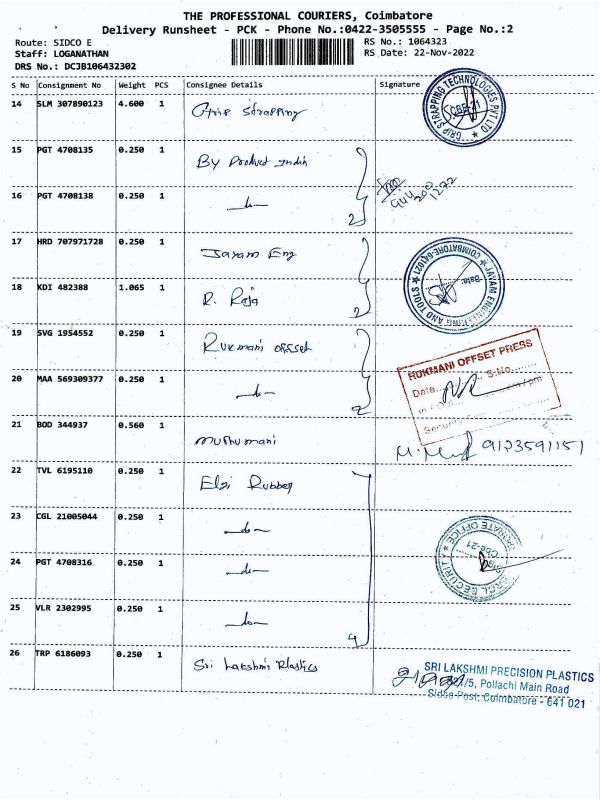 THE PROFESSIONAL COURIERS, Coimbatore
Delivery Runsheet - PCK - Phone No.:0422-3505555 - Page No.:2
Route: SIDCO E
RS No.: 1064323
Staff: LOGANATHAN
RS Date: 22-Nov-2022
DRS No.: DCJB106432302
S No Consignment No Weight PCS Consignee Details Signature
14 SLM 307890123 4.600 1 Grip Strapping
GRIP STRAPPING TECHNOLOGIES PVT LTD
CBE-21
15 PGT 4708135 0.250 1 By Product India
16 PGT 4708138 0.250 1 -do-
2
17 HRD 707971728 0.250 1 Jayam Eng
18 KDI 482388 1.065 1 R. Raja
2
JAYAM ENGINEERING AND TOOLS
COIMBATORE-641021
Date:
19 SVG 1954552 0.250 1 Rukmani offset
20 MAA 569309377 0.250 1 -do-
2
RUKMANI OFFSET PRESS
Date S.No.
Security
21 BOD 344937 0.560 1 Muthumani
9123591151
22 TVL 6195110 0.250 1 Elgi Rubber
23 CGL 21005044 0.250 1 -do-
24 PGT 4708316 0.250 1 -do-
25 VLR 2302995 0.250 1 -do-
4
CBE-21
26 TRP 6186093 0.250 1 Sri Lakshmi Plastics
SRI LAKSHMI PRECISION PLASTICS
/5, Pollachi Main Road
Sidco Post, Coimbatore - 641 021